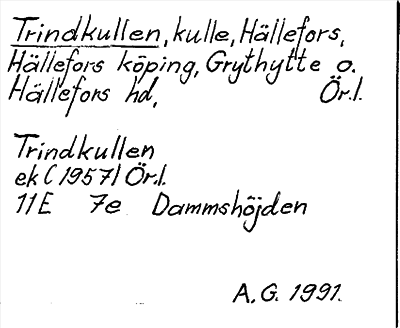 Trindkullen, kulle, Hällefors,
Hällefors köping, Grythytte o.
Hällefors hd, Ör.l.
Trindkullen
ek (1957) Ör.l.
11E 7e Dammshöjden
A.G. 1991.